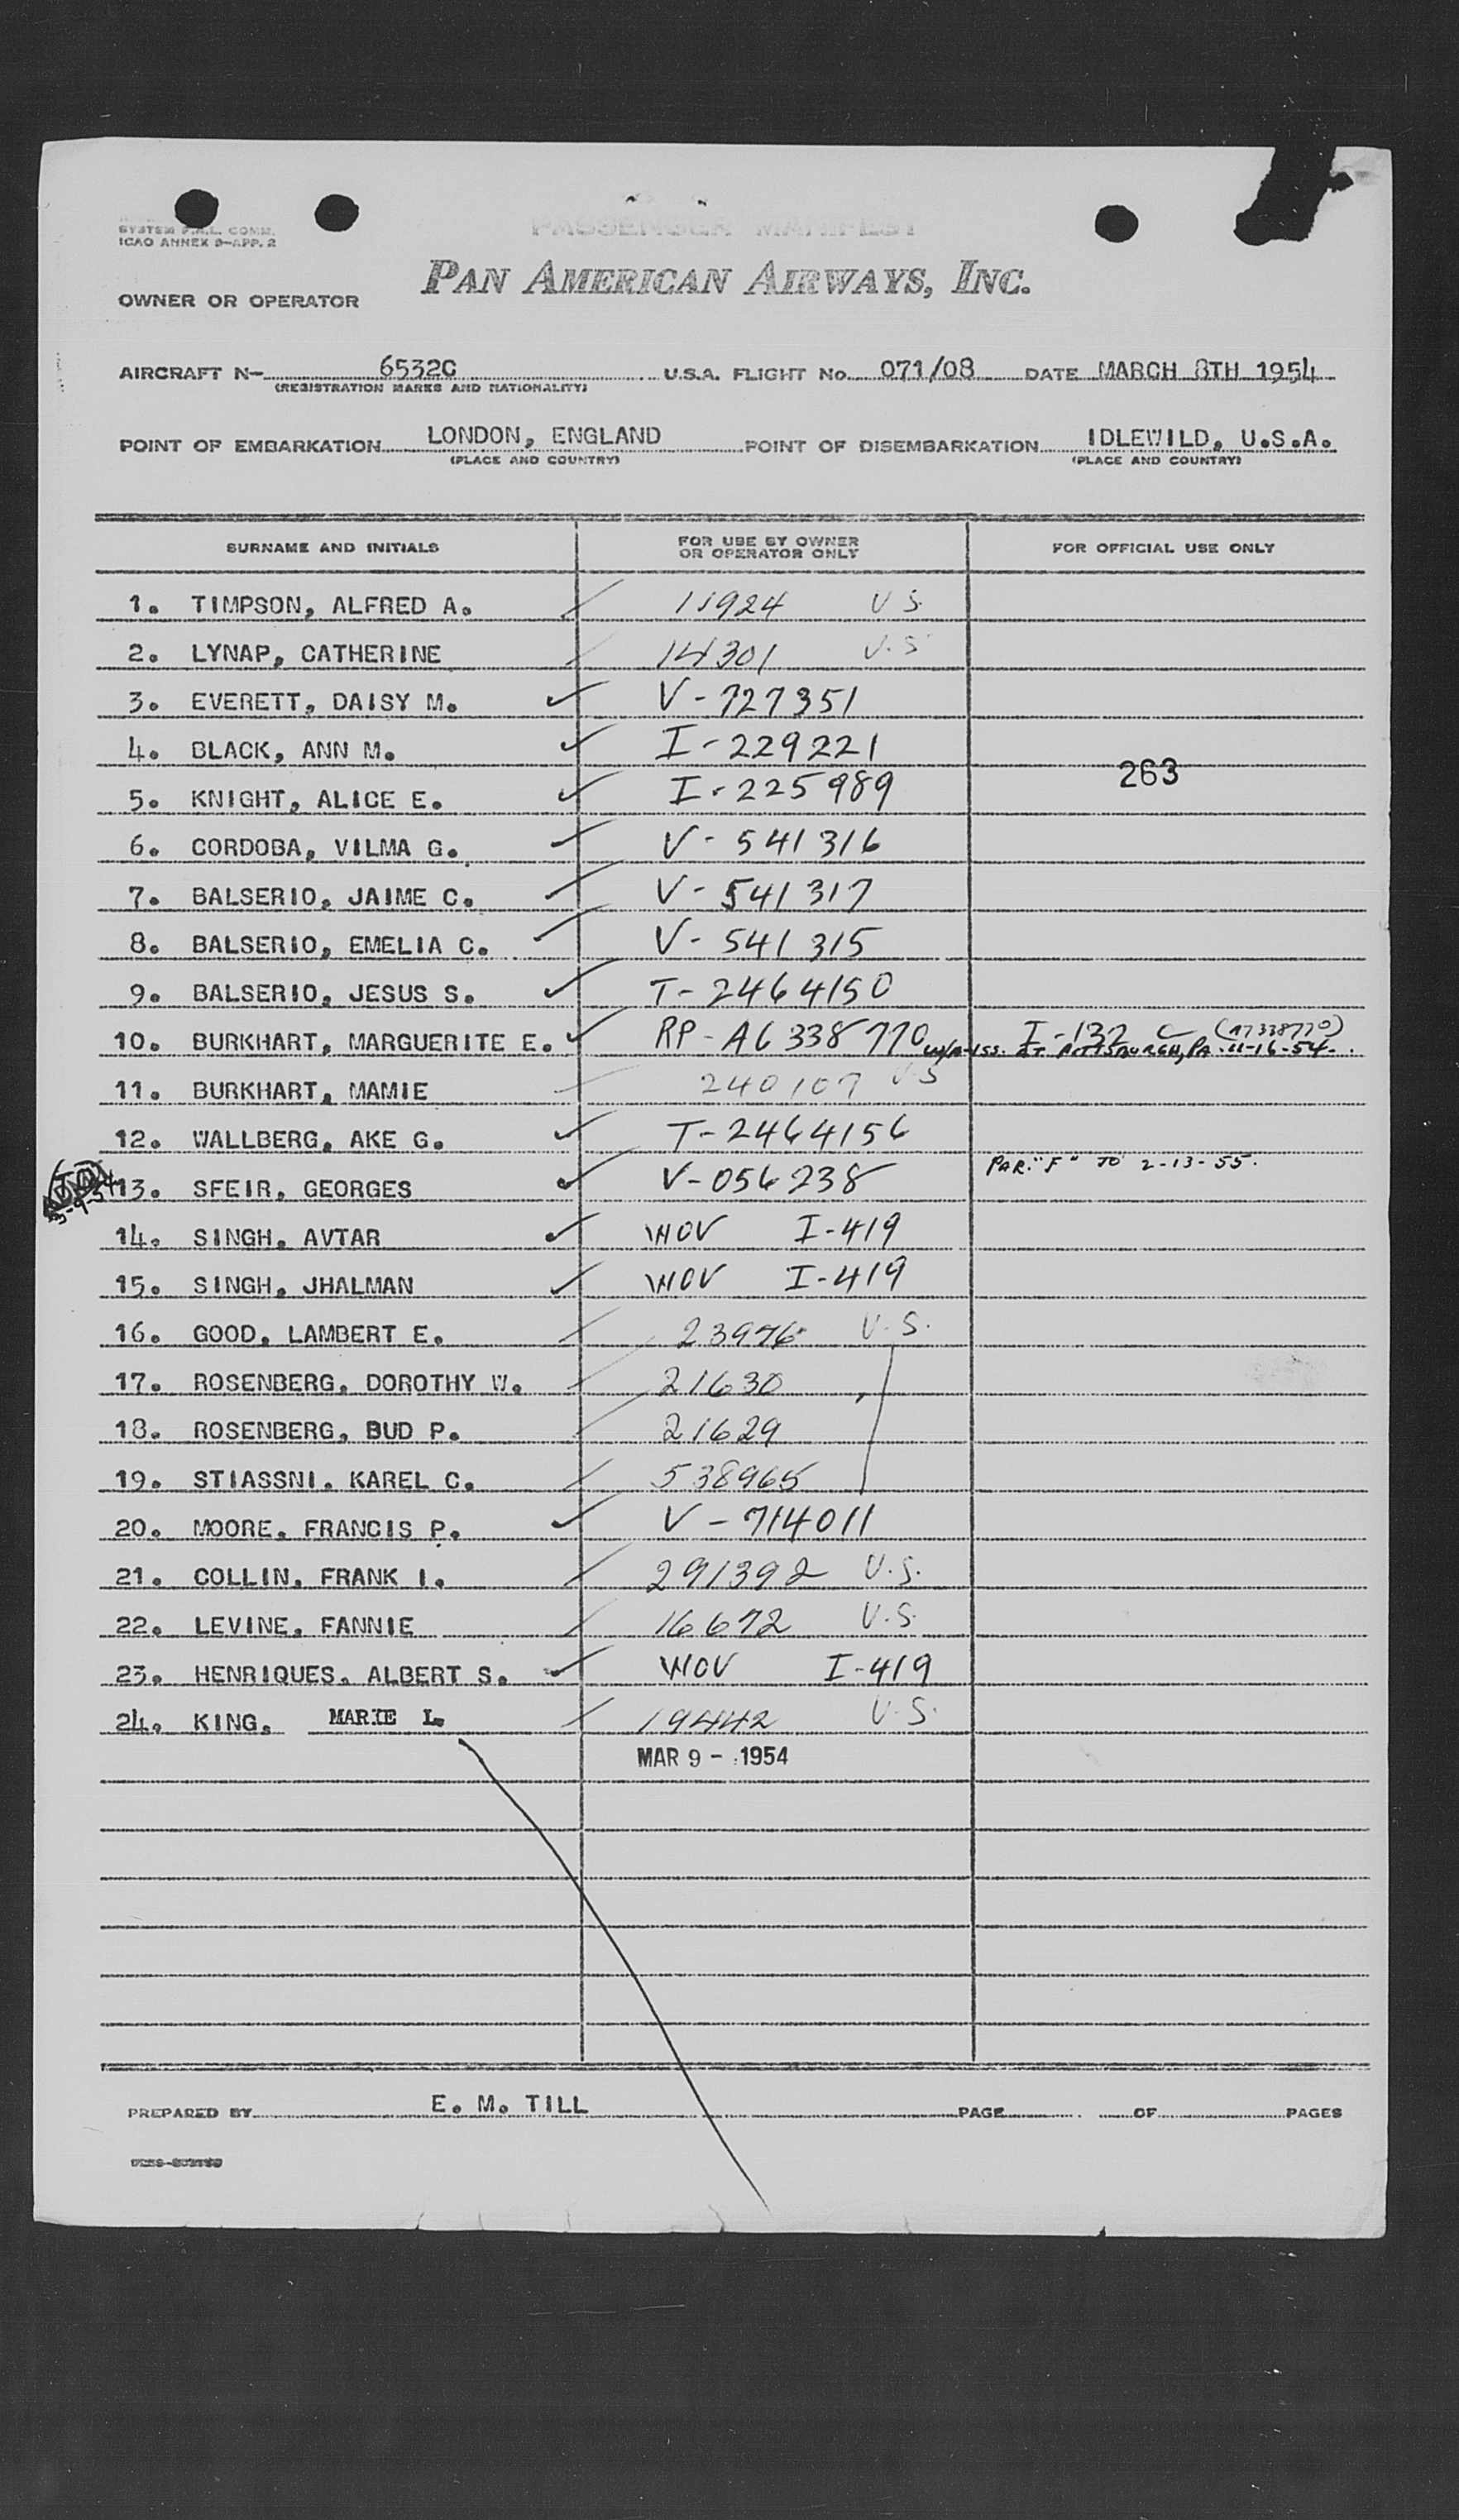 SYSTEM F.A.L. COMM.
ICAO ANNEX 9-APP. 2
PASSENGER MANIFEST
PAN AMERICAN AIRWAYS, INC.
OWNER OR OPERATOR
AIRCRAFT N- 6532C U.S.A. FLIGHT No. 071/08 DATE MARCH 8TH 1954
(REGISTRATION MARKS AND NATIONALITY)
POINT OF EMBARKATION LONDON, ENGLAND POINT OF DISEMBARKATION IDLEWILD, U.S.A.
(PLACE AND COUNTRY) (PLACE AND COUNTRY)
SURNAME AND INITIALS FOR USE BY OWNER OR OPERATOR ONLY FOR OFFICIAL USE ONLY
1. TIMPSON, ALFRED A. 11924 U S.
2. LYNAP, CATHERINE 14301 U.S
3. EVERETT, DAISY M. V-727351
4. BLACK, ANN M. I-229221
263
5. KNIGHT, ALICE E. I-225989
6. CORDOBA, VILMA G. V-541316
7. BALSERIO, JAIME C. V-541317
8. BALSERIO, EMELIA C. V-541315
9. BALSERIO, JESUS S. T-2464150
10. BURKHART, MARGUERITE E. RP-A6 338 770 I-132 C (A7338770)
ISS. AT PITTSBURGH, PA. 11-16-54.
11. BURKHART, MAMIE 240107 US
12. WALLBERG, AKE G. T-2464156
13. SFEIR, GEORGES V-056238 PAR. "F" TO 2-13-55.
3-9-54
14. SINGH, AVTAR WOV I-419
15. SINGH, JHALMAN WOV I-419
16. GOOD, LAMBERT E. 23976 U.S.
17. ROSENBERG, DOROTHY W. 21630
18. ROSENBERG, BUD P. 21629
19. STIASSNI, KAREL C. 538965
20. MOORE, FRANCIS P. V-714011
21. COLLIN, FRANK I. 291392 U.S.
22. LEVINE, FANNIE 16672 U.S.
23. HENRIQUES, ALBERT S. WOV I-419
24. KING, MARIE L. 19442 U.S.
MAR 9 - 1954
PREPARED BY E. M. TILL PAGE OF PAGES